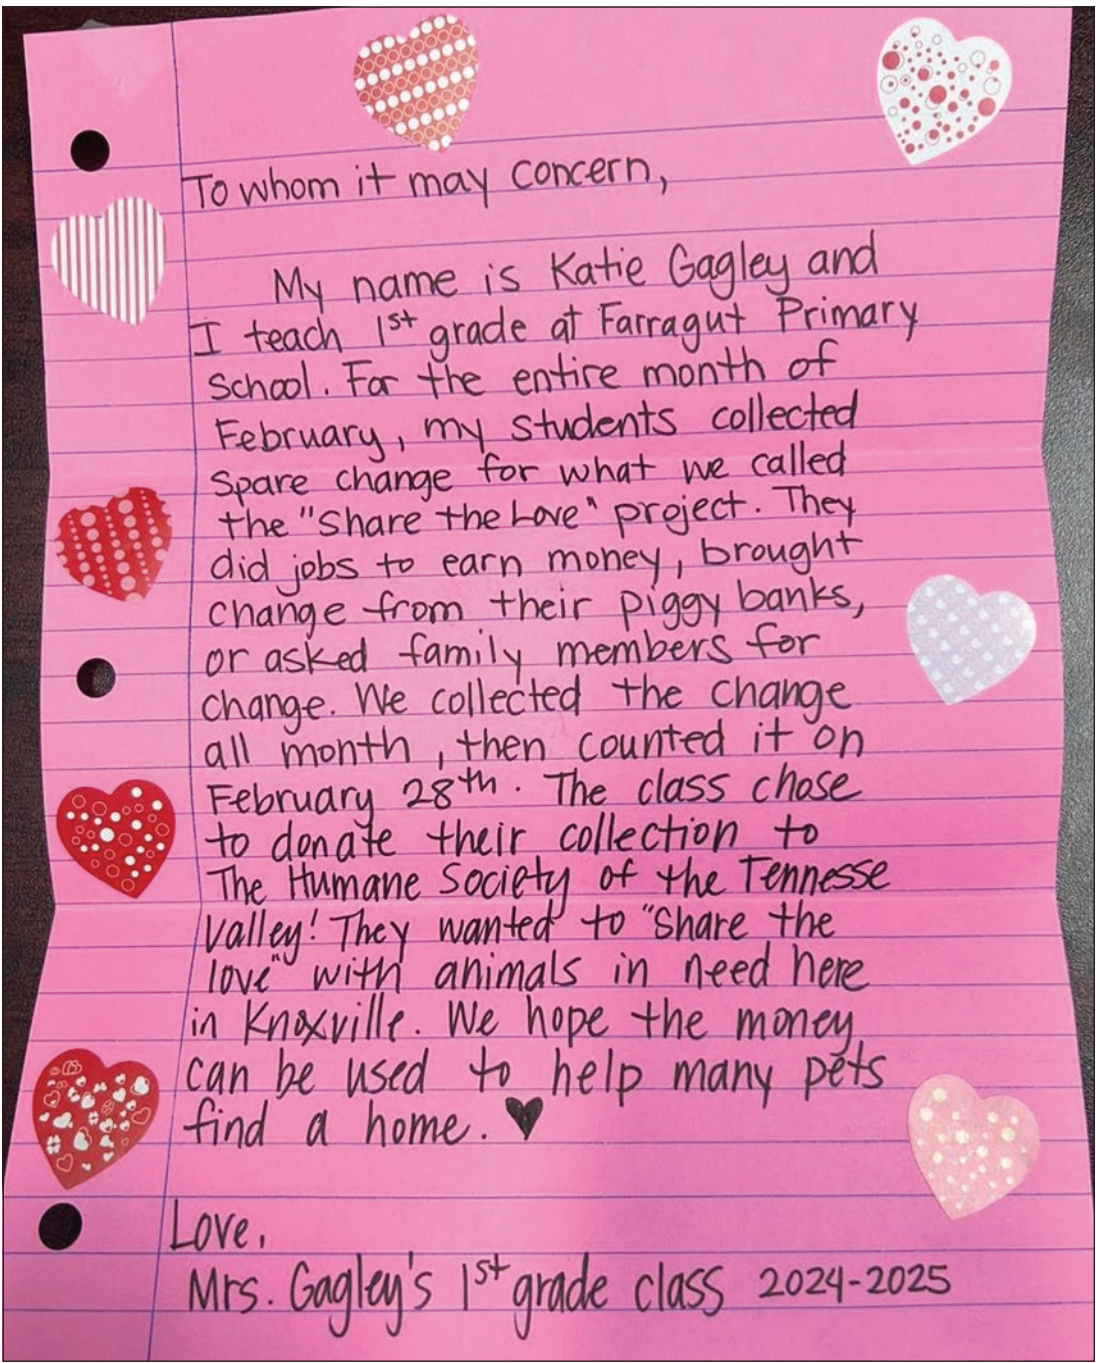 To whom it may concern,
My name is Katie Gagley and
I teach 1st grade at Farragut Primary
School. For the entire month of
February, my students collected
spare change for what we called
the "Share the Love" project. They
did jobs to earn money, brought
change from their piggy banks,
or asked family members for
change. We collected the change
all month, then counted it on
February 28th. The class chose
to donate their collection to
The Humane Society of the Tennesse
Valley! They wanted to "Share the
love" with animals in need here
in Knoxville. We hope the money
can be used to help many pets
find a home. ♥
Love,
Mrs. Gagley's 1st grade class 2024-2025